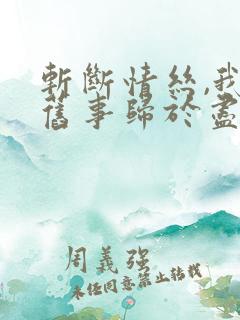 斬斷情絲,我
舊事歸於盡
周義強
未经同意禁止转载